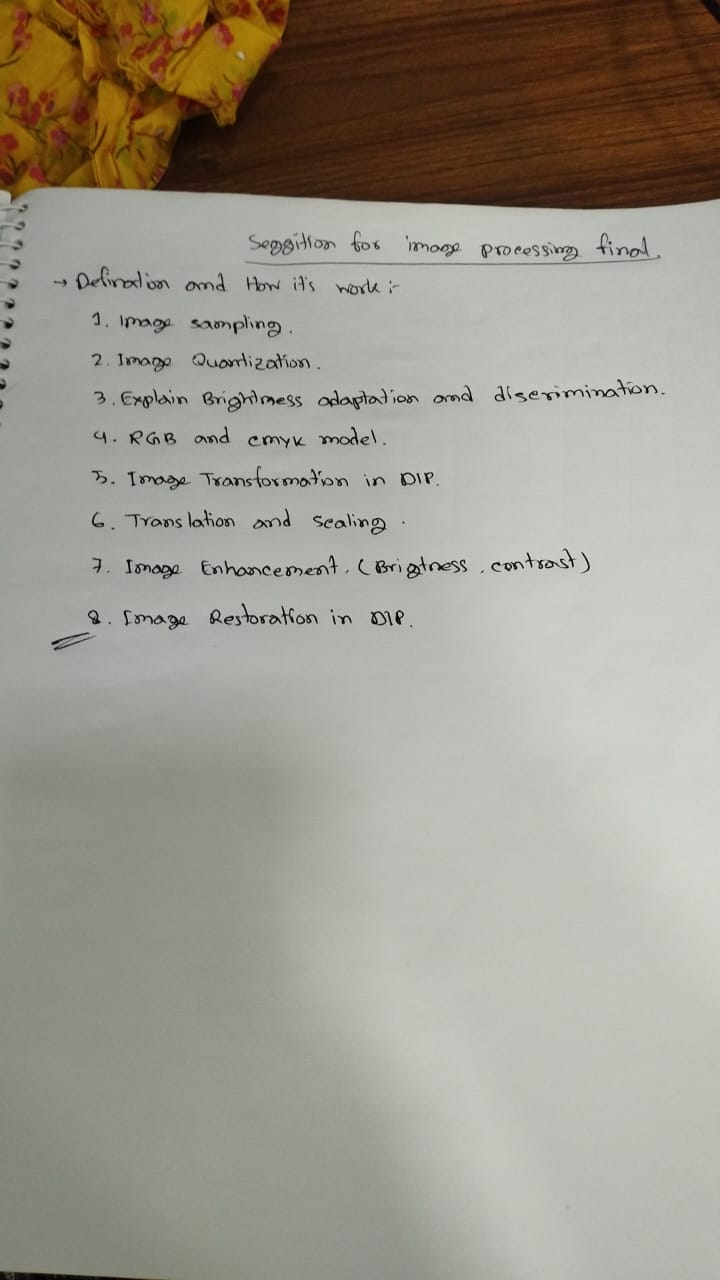 Seggition for image processing final.
→ Defination and How it's work :-
1. Image sampling.
2. Image Quantization.
3. Explain Brightness adaptation and discrimination.
4. RGB and cmyk model.
5. Image Transformation in DIP.
6. Translation and scaling.
7. Image Enhancement. (Brigtness, contrast)
8. Image Restoration in DIP.